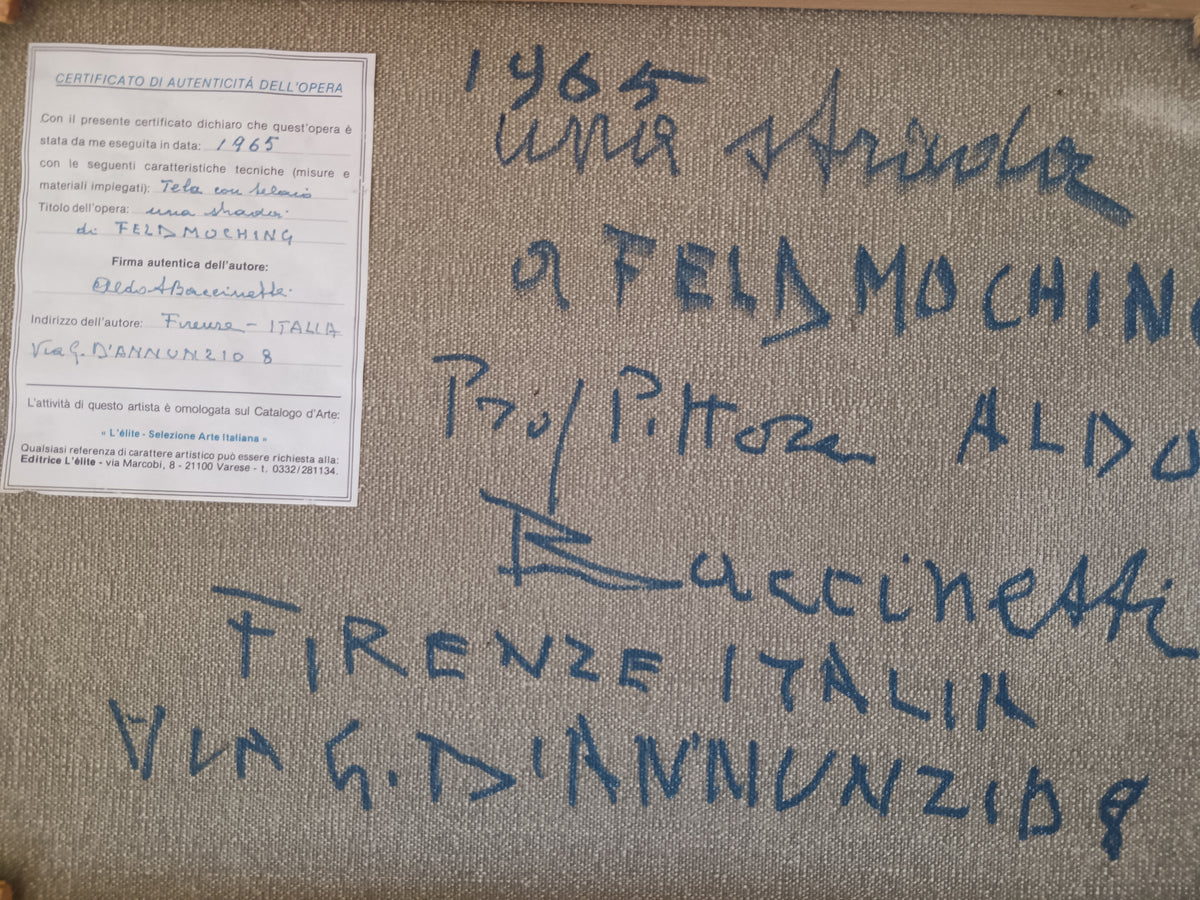 CERTIFICATO DI AUTENTICITÁ DELL'OPERA
Con il presente certificato dichiaro che quest'opera è
stata da me eseguita in data: 1965
con le seguenti caratteristiche tecniche (misure e
materiali impiegati): Tela con telaio
Titolo dell'opera: una strada
di FELDMOCHING
Firma autentica dell'autore:
Aldo Baccinetti
Indirizzo dell'autore: Firenze - ITALIA
Via G. D'ANNUNZIO 8
L'attività di questo artista è omologata sul Catalogo d'Arte:
« L'élite - Selezione Arte Italiana »
Qualsiasi referenza di carattere artistico può essere richiesta alla:
Editrice L'élite - via Marcobi, 8 - 21100 Varese - t. 0332/281134.
1965
una strada
a FELDMOCHING
Prof Pittore ALDO
Baccinetti
FIRENZE ITALIA
VIA G. D'ANNUNZIO 8